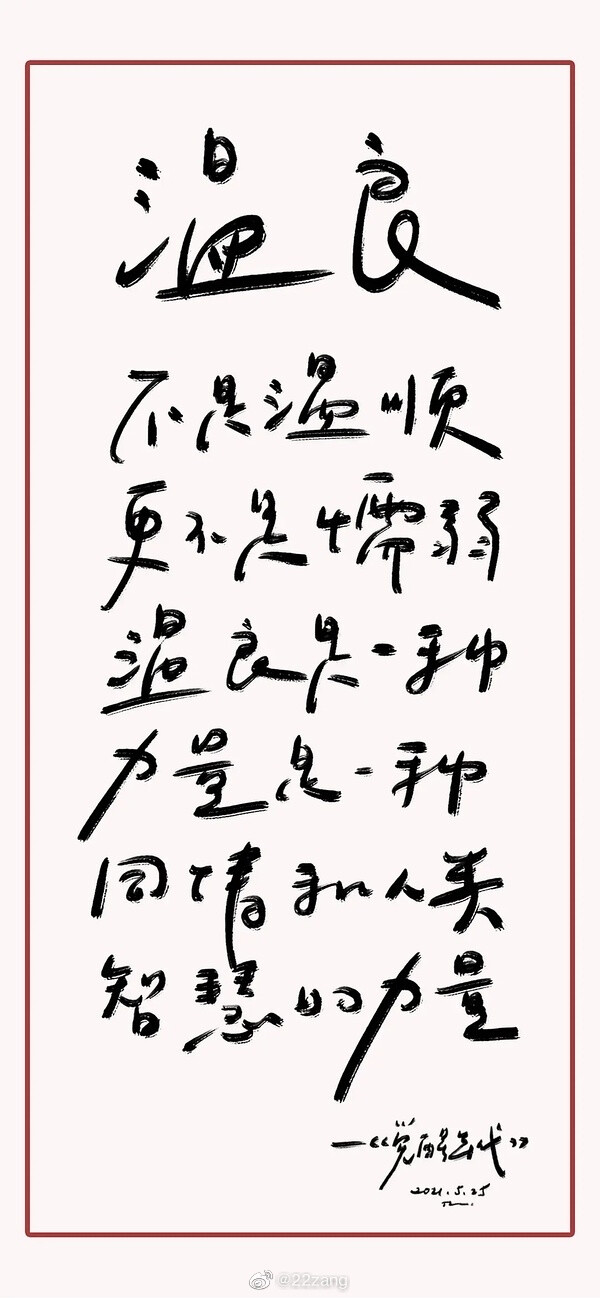 温良
不是温顺
更不是懦弱
温良是一种
力量是一种
同情和人类
智慧的力量
—《觉醒年代》
2021.5.25
@22zang